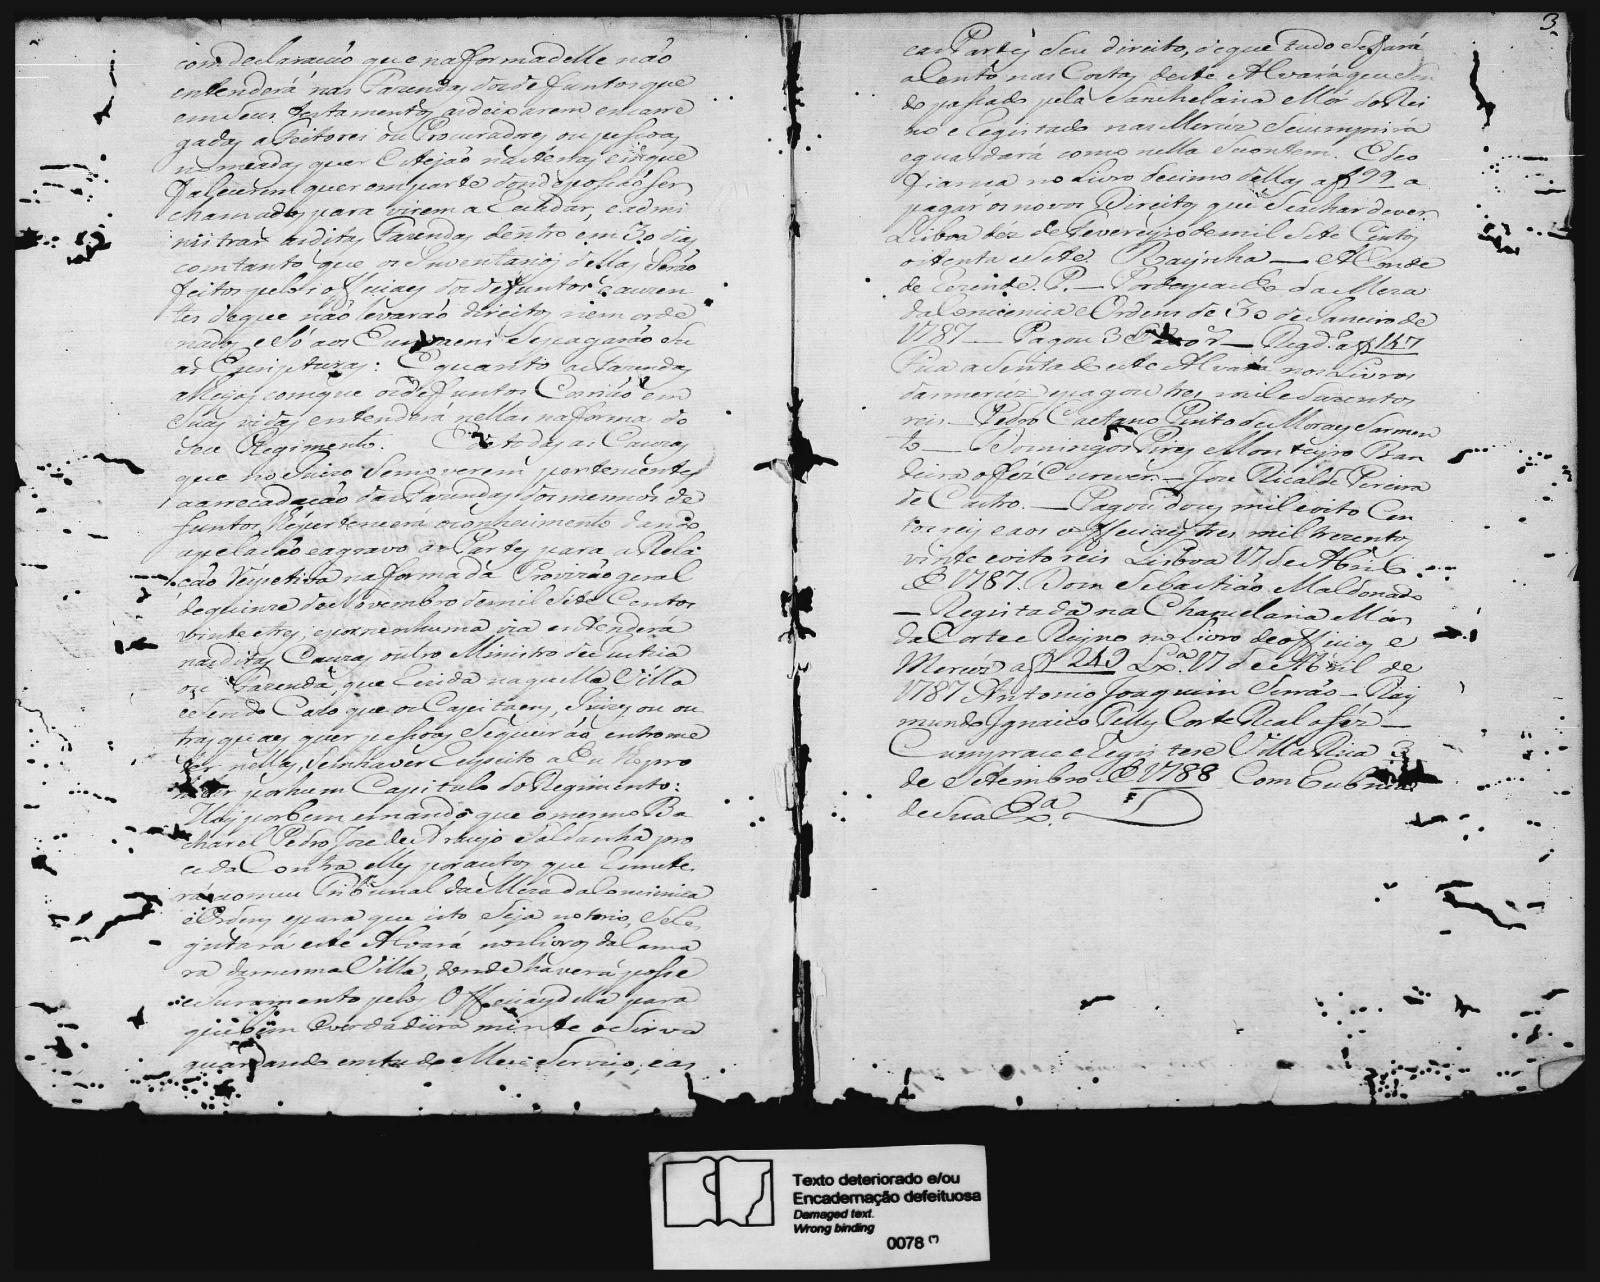 com declaração que na forma delle não
entenderá nas Fazendas dos defuntos que
em Seus testamentos as deixarem encarre
gadas a Feitores ou Procuradores ou pessoas
nomeadas quer Estejão nas terras em que
falecerem quer em parte donde possão Ser
chamados para virem a Cuidar, e admi
nistrar as ditas Fazendas dentro em 30 dias
com tanto que os Inventarios dellas Serão
feitos pelos officiaes dos defuntos e auzen
tes de que não levarão direitos nem orde
nados e Só aos Escrivaens Se pagarão Su
as Escripturas: E quanto as Fazendas
alheyas com que os defuntos Corrião em
Suas vidas entenderá nellas na forma do
Seu Regimento. E de todas as Cauzas
que no Juizo Se moverem pertencentes
a arrecadação das Fazendas dos mesmos de
funtos lhe pertencerá o conhecimento dando
apelação e agravo as Partes para a Rela
ção respectiva na forma da Provizão geral
de quinze de Novembro de mil Sete Centos
vinte e tres, e por nenhuma via entenderá
nas ditas Cauzas outro Ministro de Justiça
ou Fazenda, que Rezida naquella Villa
e Sendo Cazo que os Capitaens, Juizes ou ou
tras quaes quer pessoas Se queirão entrome
ter nellas, Sem haver Respeito a Eu lho pro
hibir por hum Capitulo do Regimento:
Hey por bem e mando, que o mesmo Ba
charel Pedro Joze de Araujo Saldanha pro
ceda Contra elles por autos que Remete
rá ao meu Tribunal da Meza da Consciencia
e Ordens e para que isto Seja notorio, Se Re
gistará este Alvará nos livros da Cama
ra da mesma Villa, donde haverá posse
e Juramento pelos Officiaes della para
que bem e verdadeira mente o Sirva
guardando em tudo o Meu Serviço, e as
3
eas Partes Seu direito, e de que tudo Se fará
aSento nas Costas deste Alvará que Sen
do passado pela Chanchelaria Mór do Rei
no e Registado nas Mercês Se cumprirá
e guardará como nelle Se contem. E deo
fiança no Livro decimo dellas a f 99 a
pagar os novos Direitos que Se achar dever.
Lisboa déz de Fevereyro de mil Sete Centos
oitenta e Sete Raynha — Conde
de Rezende. P. — Por despacho da Meza
da Consciencia e Ordens de 30 de Janeiro de
1787 — Pagou 3 — Regd.ª a f 147
Fica aSentado este Alvará nos Livros
das mercêz e pagou tres mil e duzentos
reis — Pedro Caetano Pinto de Moraes Sarmen
to — Domingos Pires Monteyro Ban
deira o fêz Escrever. — Joze Ricalde Pereira
de Castro. — Pagou dous mil e oito Cen
tos reis e aos Officiaes tres mil trezentos
vinte e oito reis Lisboa 17 de Abril
de 1787. Dom Sebastião Maldonado
— Registada na Chancelaria Mór
da Corte e Reyno no livro de officios e
Mercêz a f 249 Lx.ª 17 de Abril de
1787 Antonio Joaquim Serrão — Ray
mundo Ignacio Telles Corte Real o fêz —
Cumprace e registese Villa Rica 3
de Setembro de 1788 Com Rubrica
de Sua Ex.ª
Texto deteriorado e/ou
Encadernação defeituosa
Damaged text.
Wrong binding
0078 (*)